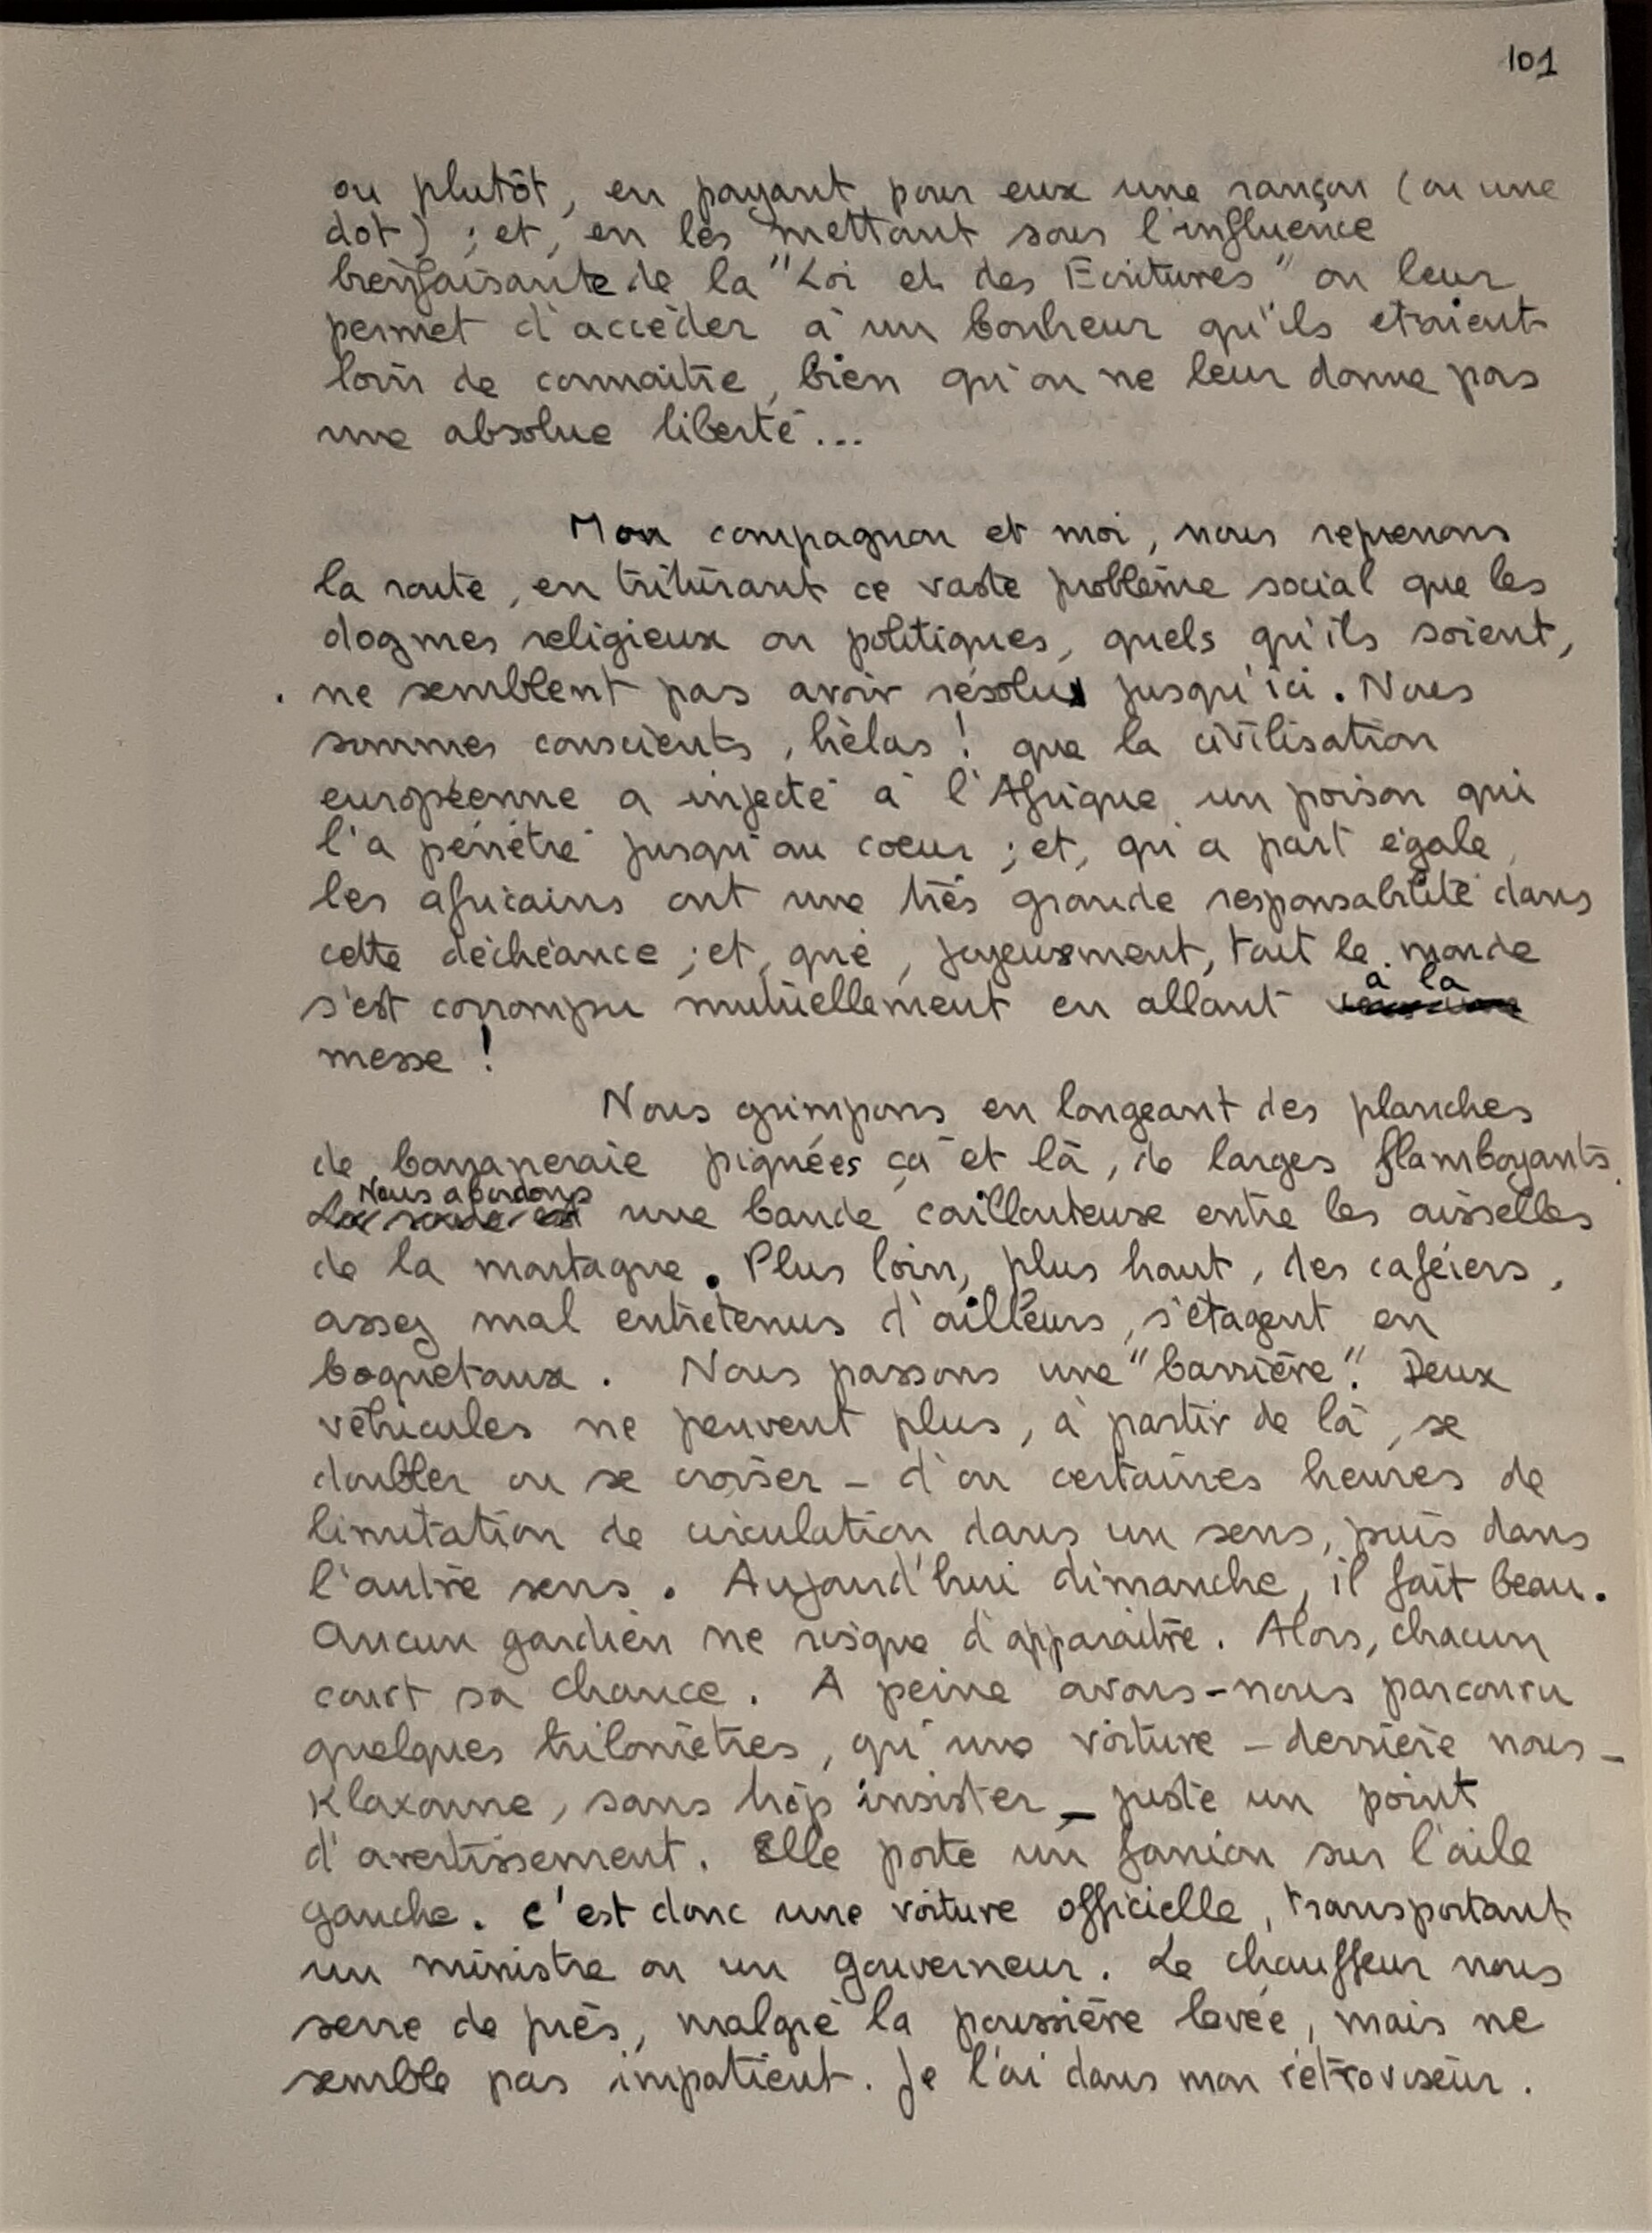 101
ou plutôt, en payant pour eux une rançon (ou une
dot) ; et, en les mettant sous l'influence
bienfaisante de la "Loi et des Ecritures" on leur
permet d'accéder à un bonheur qu'ils étaient
loin de connaître, bien qu'on ne leur donne pas
une absolue liberté...
Mon compagnon et moi, nous reprenons
la route, en triturant ce vaste problème social que les
dogmes religieux ou politiques, quels qu'ils soient,
ne semblent pas avoir résolu jusqu'ici. Nous
sommes conscients, hélas ! que la civilisation
européenne a injecté à l'Afrique un poison qui
l'a pénétré jusqu'au coeur ; et, qu'a part égale,
les africains ont une très grande responsabilité dans
cette déchéance ; et, que, joyeusement, tout le monde
s'est corrompu mutuellement en allant à la
messe !
Nous grimpons en longeant des planches
de bananeraie piquées çà et là, de larges flamboyants.
Nous abordons une bande caillouteuse entre les aisselles
de la montagne. Plus loin, plus haut, des caféiers,
assez mal entretenus d'ailleurs, s'étagent en
boquetaux. Nous passons une "barrière". Deux
véhicules ne peuvent plus, à partir de là, se
doubler ou se croiser - d'ou certaines heures de
limitation de circulation dans un sens, puis dans
l'autre sens. Aujourd'hui dimanche, il fait beau.
Aucun gardien ne risque d'apparaître. Alors, chacun
court sa chance. A peine avons-nous parcouru
quelques kilomètres, qu'une voiture - derrière nous -
Klaxonne, sans trop insister - juste un point
d'avertissement. Elle porte un fanion sur l'aile
gauche. C'est donc une voiture officielle, transportant
un ministre ou un gouverneur. Le chauffeur nous
serre de près, malgré la poussière levée, mais ne
semble pas impatient. Je l'ai dans mon rétroviseur.